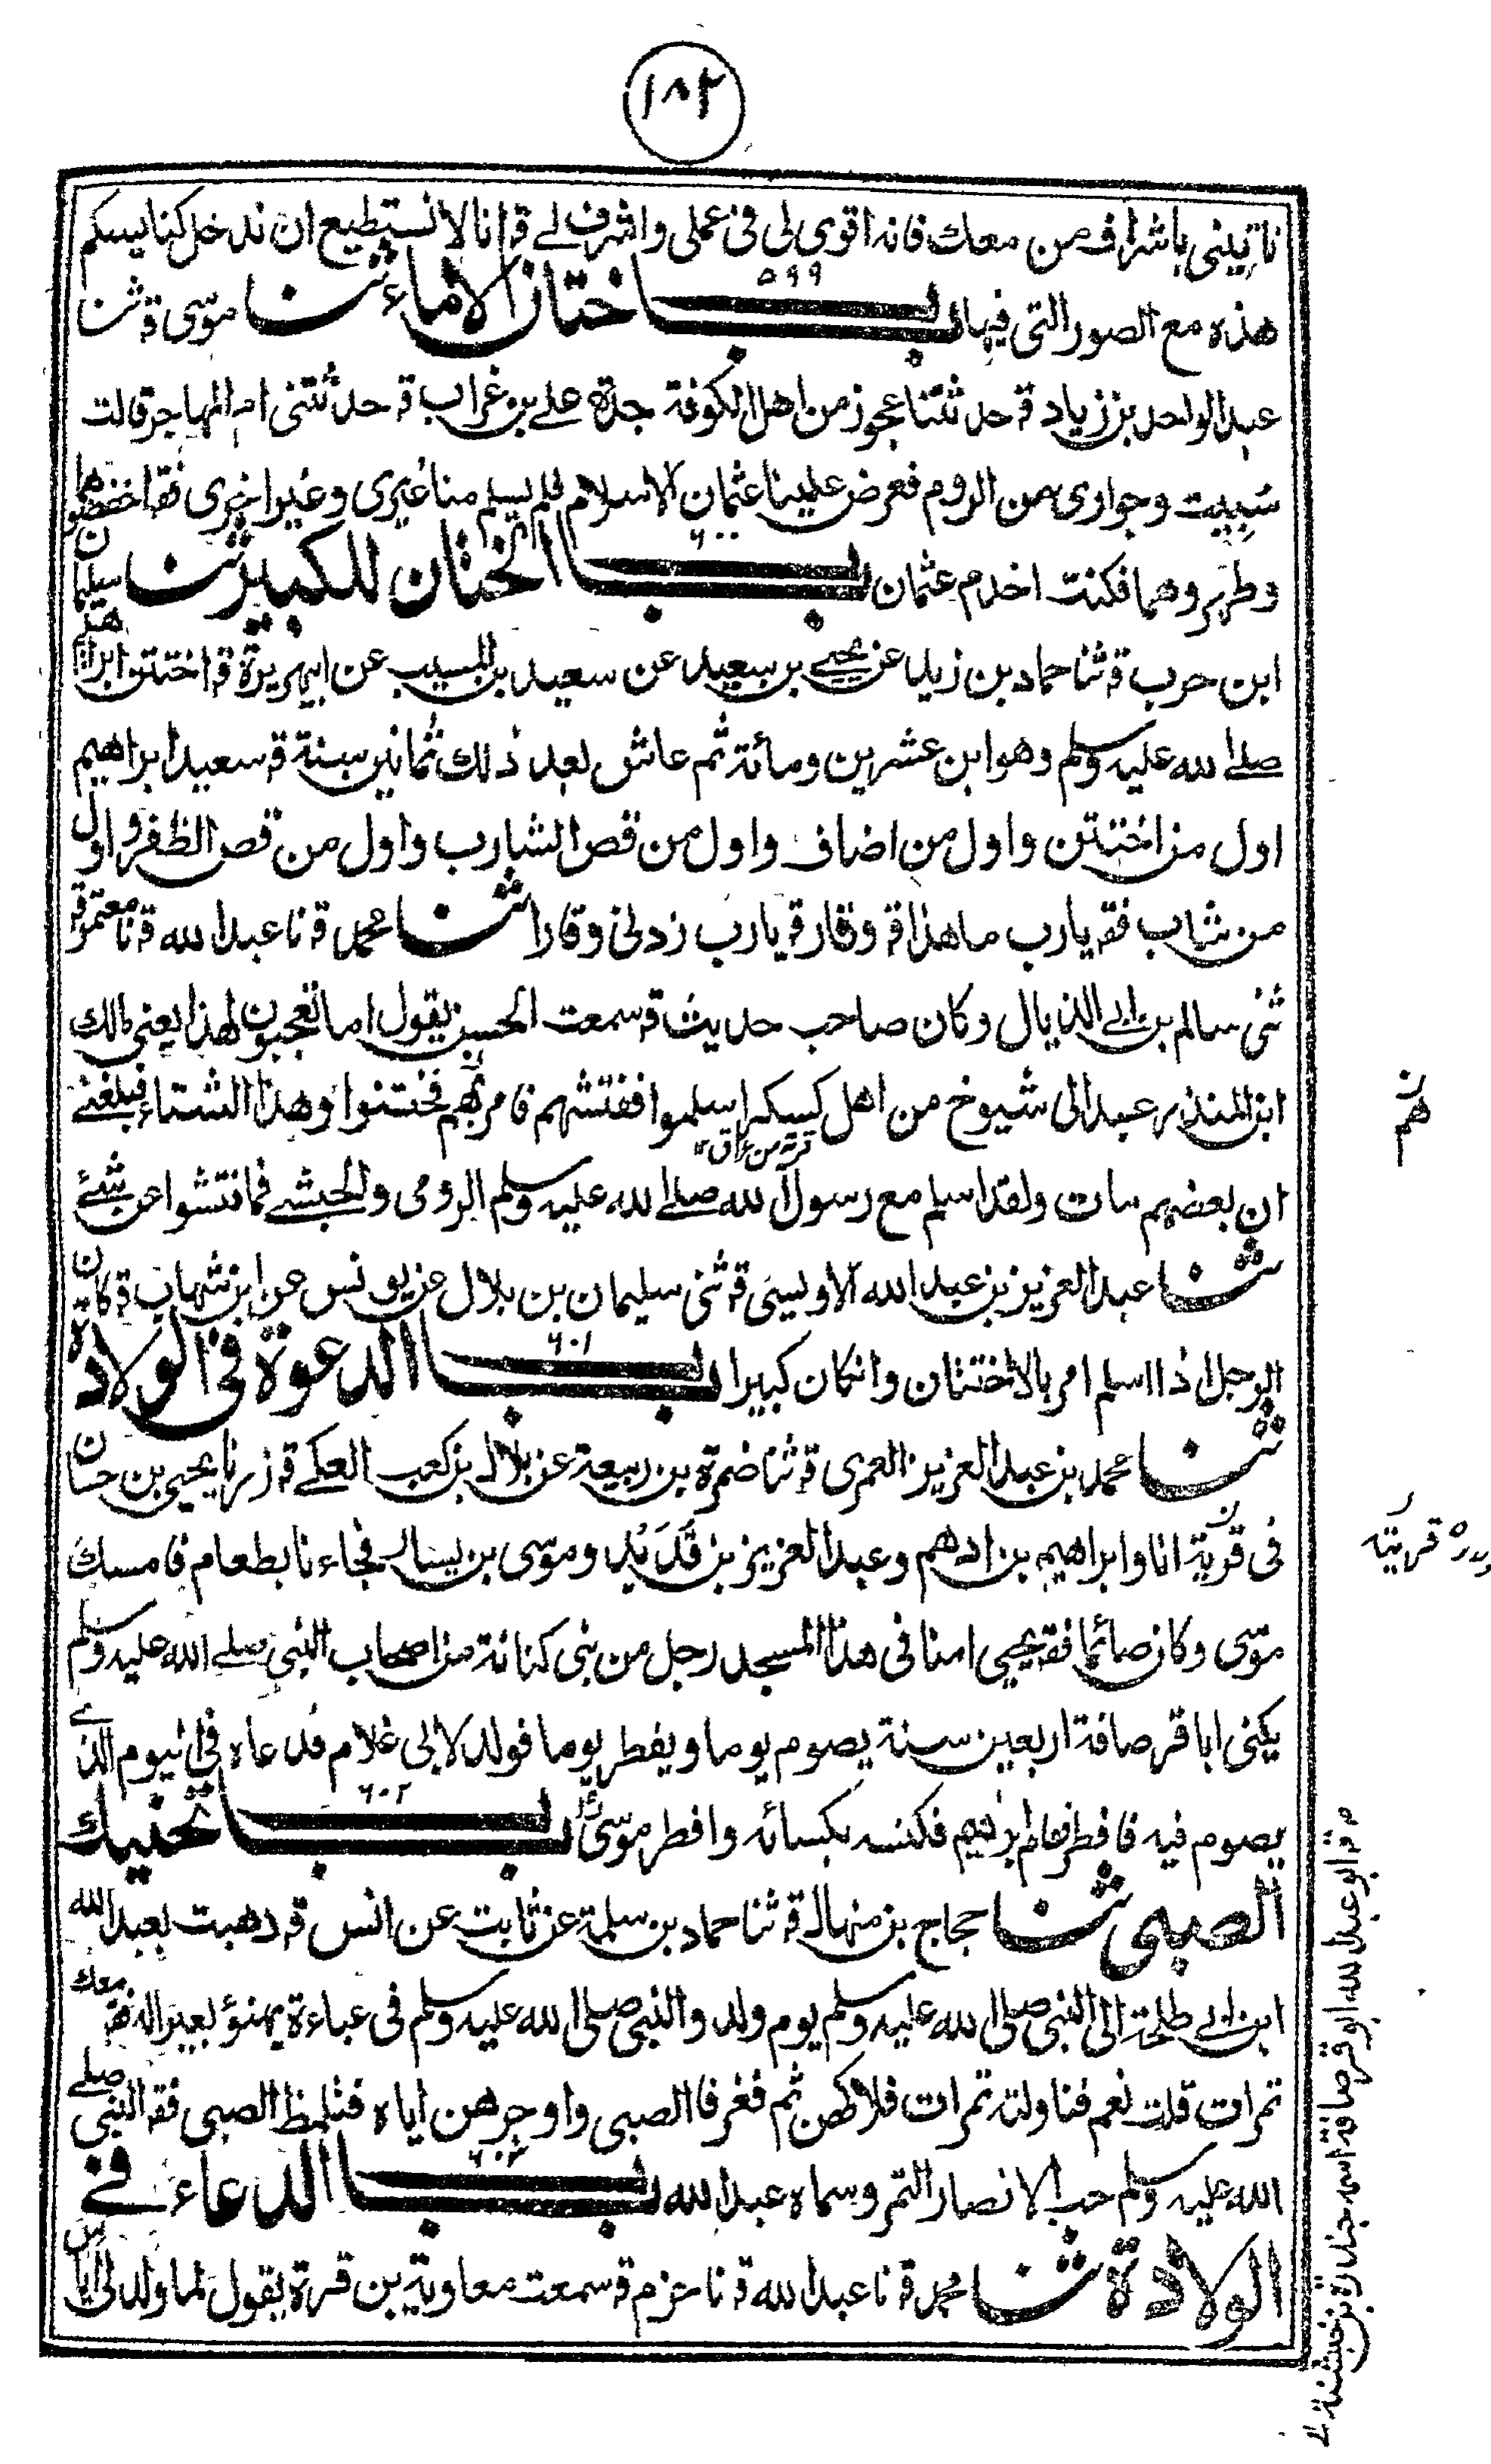 ١٨٢
تاتينى باشراف من معك فانه اقوى لى فى عملى واشرف لے قہ انا لا نستطيع ان ندخل كنايسكم
هذه مع الصور التى فيها باب ٥٩٩ ختان الاماء ثنا موسى قہ ثنا
عبد الواحد بن زياد قہ حدثتنا عجوز من اهل الكوفة جدة علے بن غراب قہ حدثتنى ام المهاجر قالت
سُبِيت وجوارى من الروم فعرض علينا عثمان الاسلام فلم يسلم منا غيرى وغير اخرى فقہ اخفضوهما
وطهروهما فكنت اخدم عثمان باب ٦٠٠ الختان للكبير ثنا سليمان
ابن حرب قہ ثنا حماد بن زيد عن يحيے بن سعيد عن سعيد بن المسيب عن ابيهريرة قہ اختتن ابراهيم
صلے الله عليه وسلم وهو ابن عشرين ومائة ثم عاش بعد ذلك ثمانين سنة قہ سعيد ابراهيم
اول من اختتن واول من اضاف واول من قص الشارب واول من قص الظفر واول
من شاب فقہ يارب ما هذا قہ وقار قہ يارب زدنى وقارا ثنا محمد قہ نا عبد الله قہ نا معتمر قہ
ثنى سالم بن ابى الذيال وكان صاحب حديث قہ سمعت الحسن يقول اما تعجبون لهذا يعنى مالك
ابن المنذر عمد الى شيوخ من اهل كسكر اسلموا ففتشهم فامر بهم فختنوا وهذا الشتاء فبلغنے
قرية من عراق
ان بعضهم مات ولقد اسلم مع رسول الله صلے الله عليه وسلم الرومى والحبشے فما فتشوا عن شئے
ثنا عبد العزيز بن عبد الله الاويسى قہ ثنى سليمان بن بلال عن يونس عن ابن شهاب قہ كان
الرجل اذا اسلم امر بالاختتان وان كان كبيرا باب ٦٠١ الدعوة فى الولادة
ثنا محمد بن عبد العزيز العمرى قہ ثنا ضمرة بن ربيعة عن بلال بن كعب العكے قہ زرنا يحيى بن حسان
فى قرية انا وابراهيم بن ادهم وعبد العزيز بن قَدَيد وموسى بن يسار فجاءنا بطعام فامسك
موسى وكان صائما فقہ يحيى امنا فى هذا المسجد رجل من بنى كنانة من اصحاب النبى صلے الله عليه وسلم
يكنى ابا قرصافة اربعين سنة يصوم يوما ويفطر يوما فولد لابى غلام فدعاه فى اليوم الذے
يصوم فيه فافطر فقام ابرهيم فكنسه بكسائه وافطر موسى باب ٦٠٢ تحنيك
الصبى ثنا حجاج بن منهال قہ ثنا حماد بن سلمة عن ثابت عن انس قہ ذهبت بعبد الله
ابن ابى طلحة الى النبى صلى الله عليه وسلم يوم ولد والنبى صلى الله عليه وسلم فى عباءة يهنؤ بعيرا له فقہ معك
تمرات قلت نعم فناولته تمرات فلاكهن ثم فغر فا الصبى واوجرهن اياه فتلمظ الصبى فقہ النبى صلے
الله عليه وسلم حب الانصار التمر وسماه عبد الله باب ٦٠٣ الدعاء فے
الولادة ثنا محمد قہ نا عبد الله قہ نا حزم قہ سمعت معاوية بن قرة يقول لما ولد لى اياس
هم
قريته
ابو عبد الله ابو قرصافة اسمه جندرة بن خيشنة